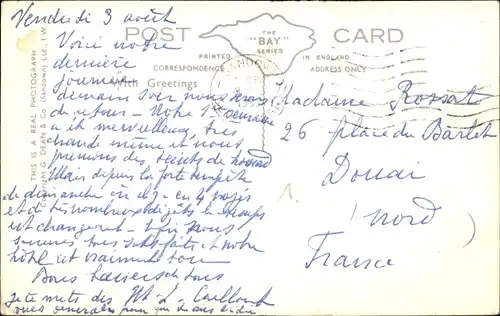 Vendredi 3 août
Voici notre
dernière
journée
demain soir nous serons
de retour - Notre
a été merveilleux, très
chaude même et nous
prenions des teints de homard
Mais depuis la forte tempête
de dimanche
et de très nombreux dégâts le temps
est changeant - Enfin nous
sommes très satisfaits et notre
hôtel est vraiment bon
Bons baisers à tous
Je te mets des
POST CARD
THE
"BAY"
SERIES
PRINTED IN ENGLAND
CORRESPONDENCE ADDRESS ONLY
With Greetings
THIS IS A REAL PHOTOGRAPH
Copyright G. DEAN & Co. (Sandown) Ltd., I.W
Madame Rossat
26 place du Barlet
Douai
(Nord)
France